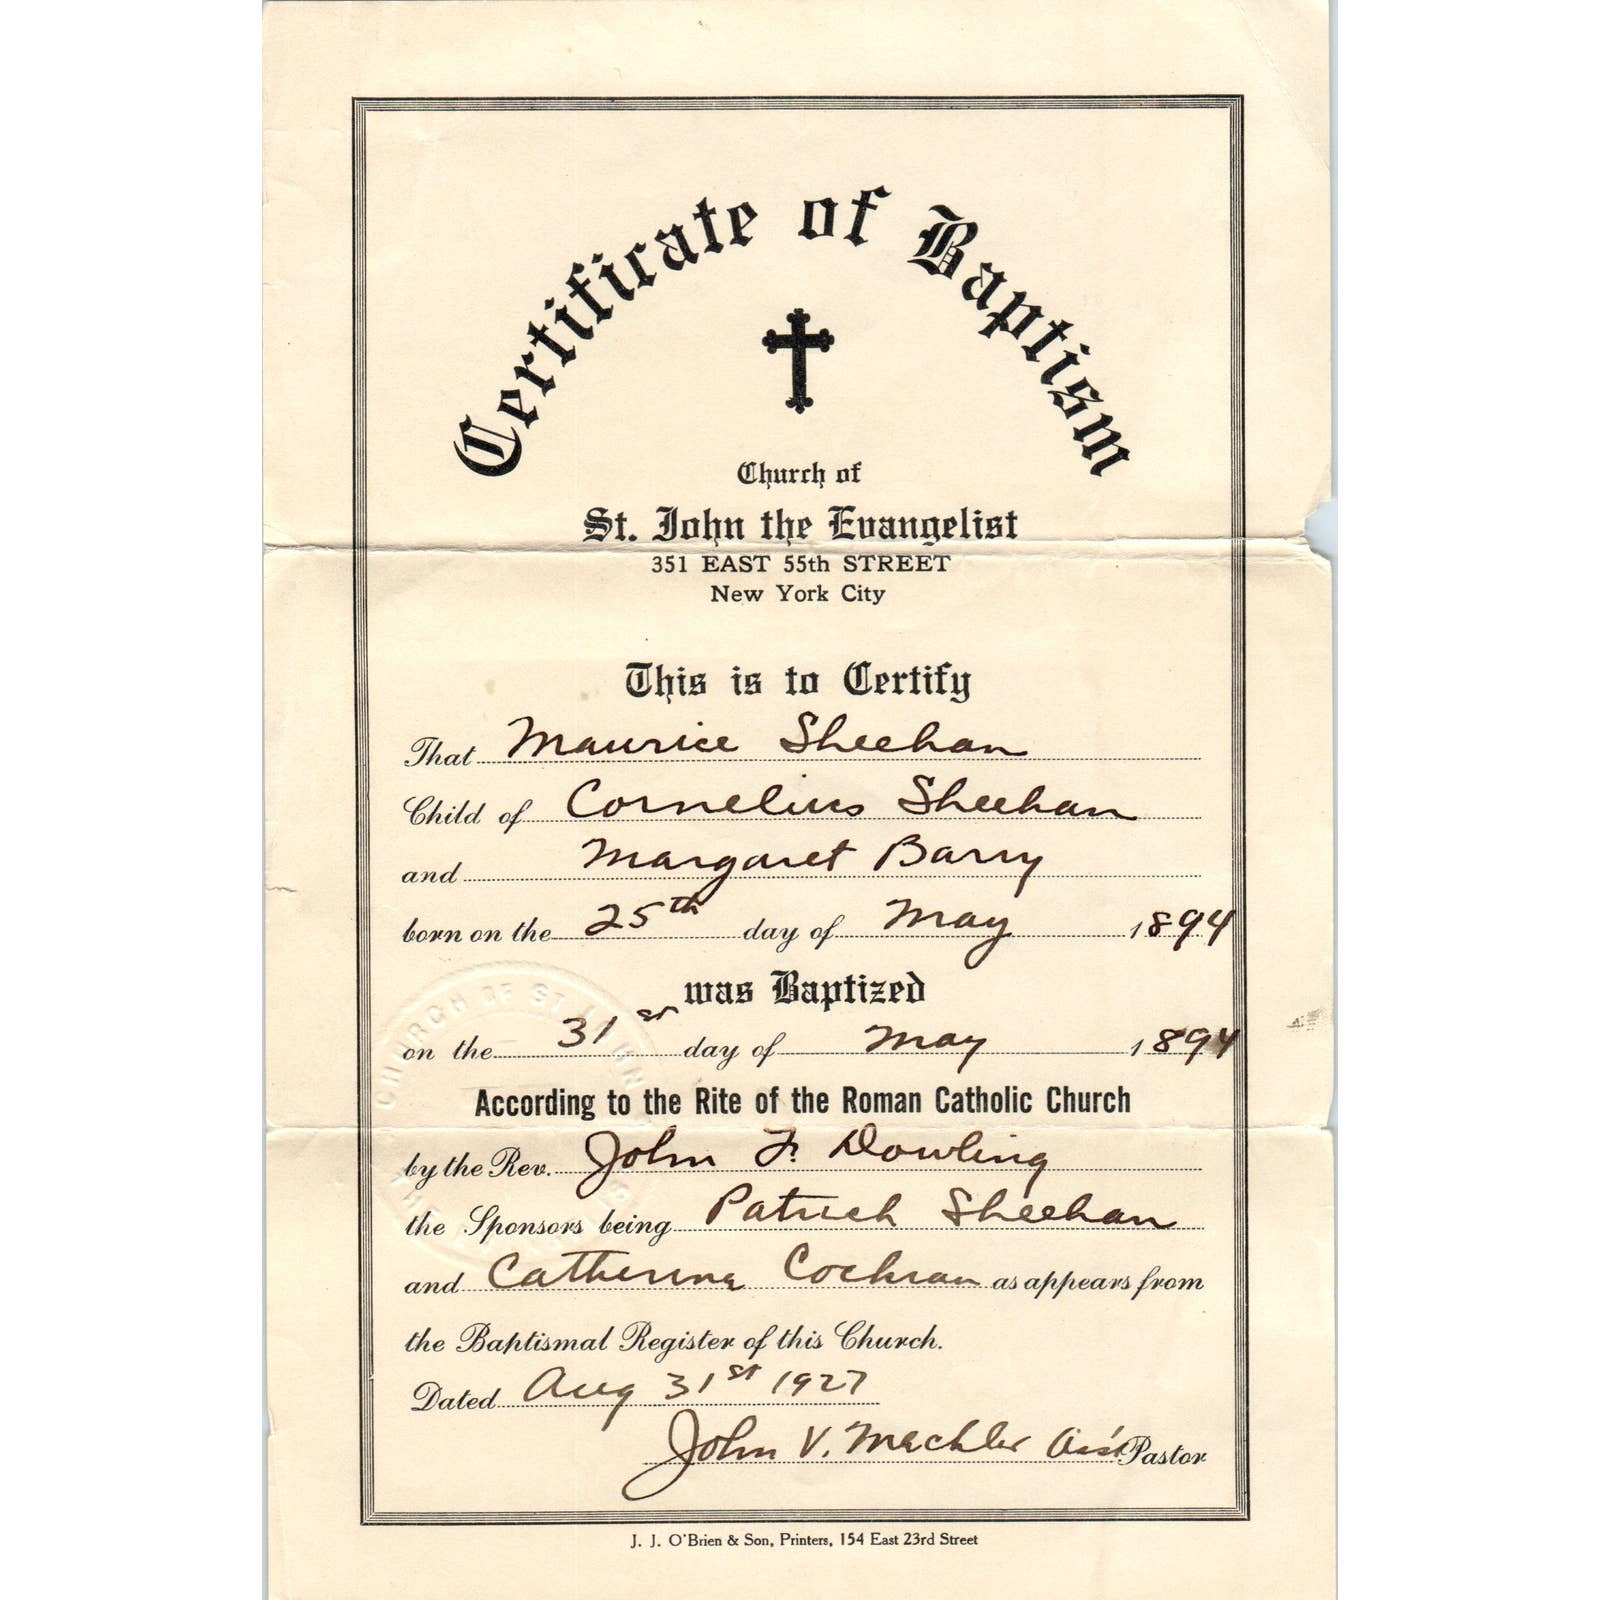 Certificate of Baptism
Church of
St. John the Evangelist
351 EAST 55th STREET
New York City
This is to Certify
That Maurice Sheehan
Child of Cornelius Sheehan
and Margaret Barry
born on the 25th day of May 1894
was Baptized
on the 31st day of May 1894
According to the Rite of the Roman Catholic Church
by the Rev. John F. Dowling
the Sponsors being Patrick Sheehan
and Catherine Cochran as appears from
the Baptismal Register of this Church.
Dated Aug 31st 1927
John V. Mechler Ass't Pastor
CHURCH OF ST. JOHN
J. J. O'Brien & Son, Printers, 154 East 23rd Street